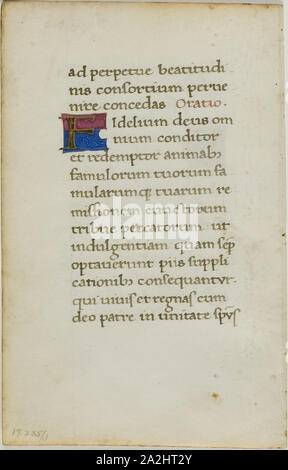 ad perpetue beatitudi-
nis consortium perue
nire concedas Oratio.
Fidelium deus om
nium conditor
et redemptor animabꝫ
famulorum tuorum fa
mularumqꝫ tuarum re
missionem cunctorum
tribue peccatorum ut
indulgentiam quam sēp
optauerunt piis suppli
cationibꝫ consequantur.
qui uiuis et regnas cum
deo patre in unitate spūs
19.255/1
alamy
Image ID: 2A2HT2Y
www.alamy.com